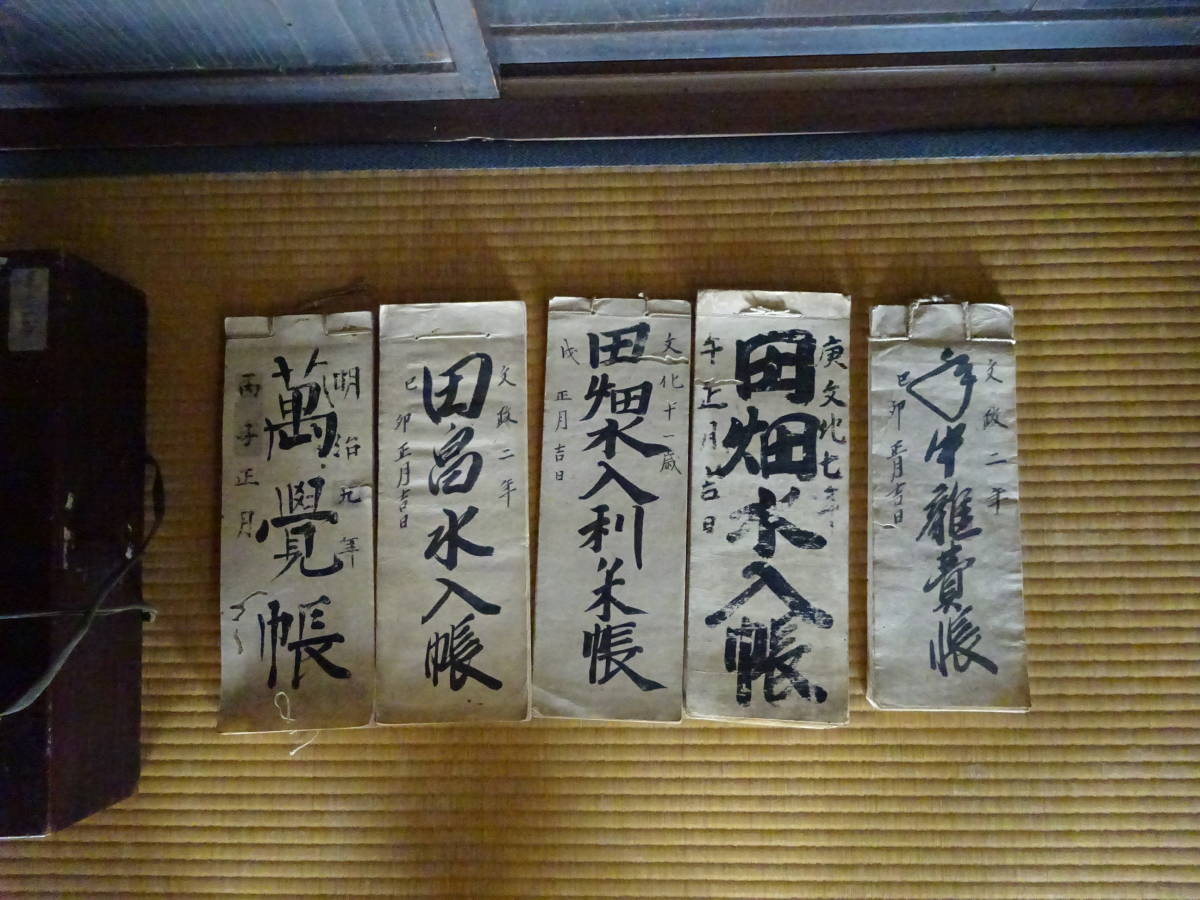 文政二年
年中雑費帳
己卯正月吉日
庚文化七年
田畑水入帳
午正月吉日
文化十一歳
田畑水入利米帳
戌正月吉日
文政二年
田畠水入帳
己卯正月吉日
明治九年
萬覺帳
丙子正月